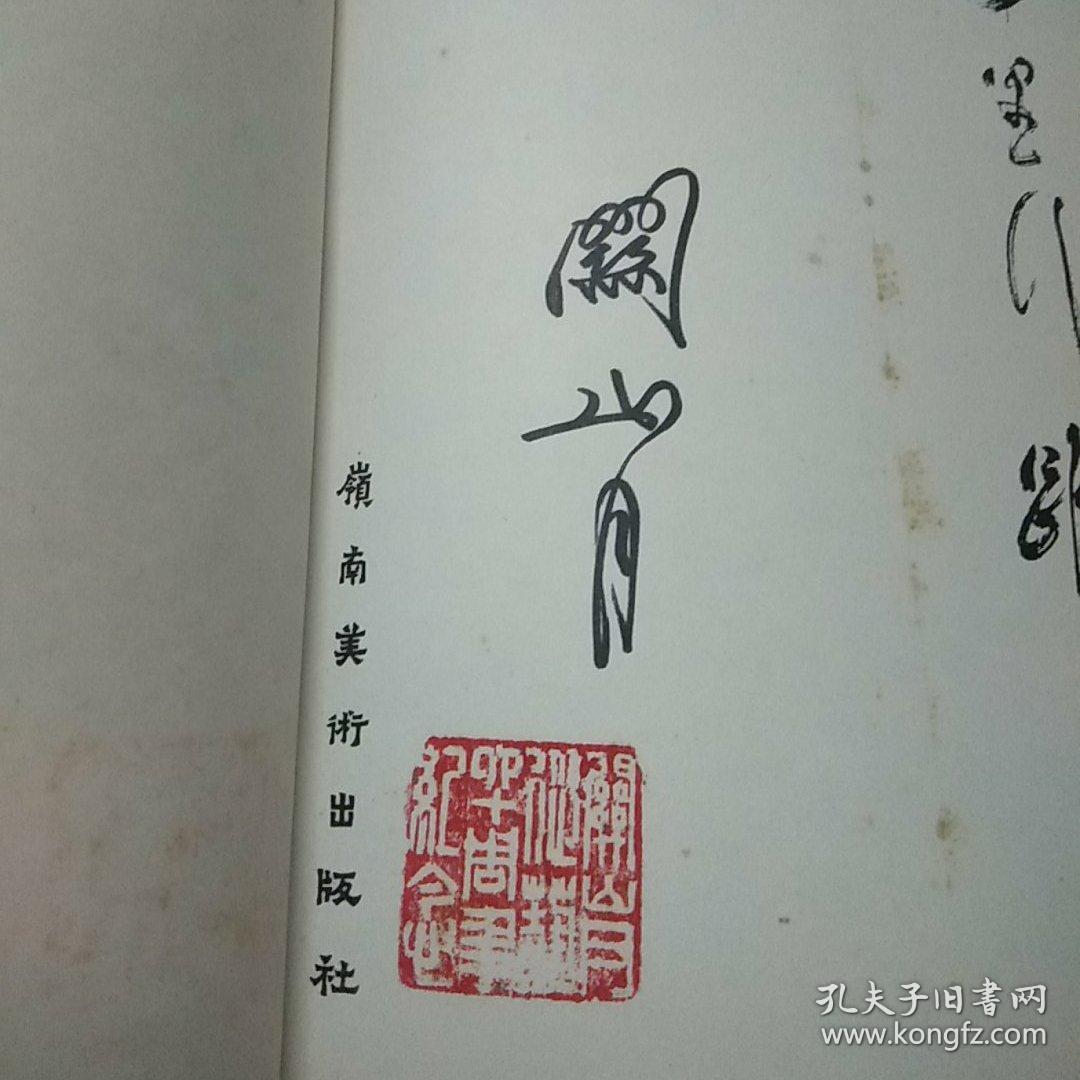 里行
關山月
關山月
從藝
四十周年
紀念
嶺南美術出版社
孔夫子旧書网
www.kongfz.com